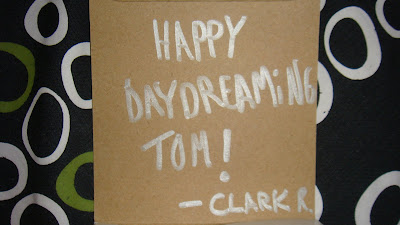 HAPPY
DAYDREAMiNG
TOM!
– CLARK R.